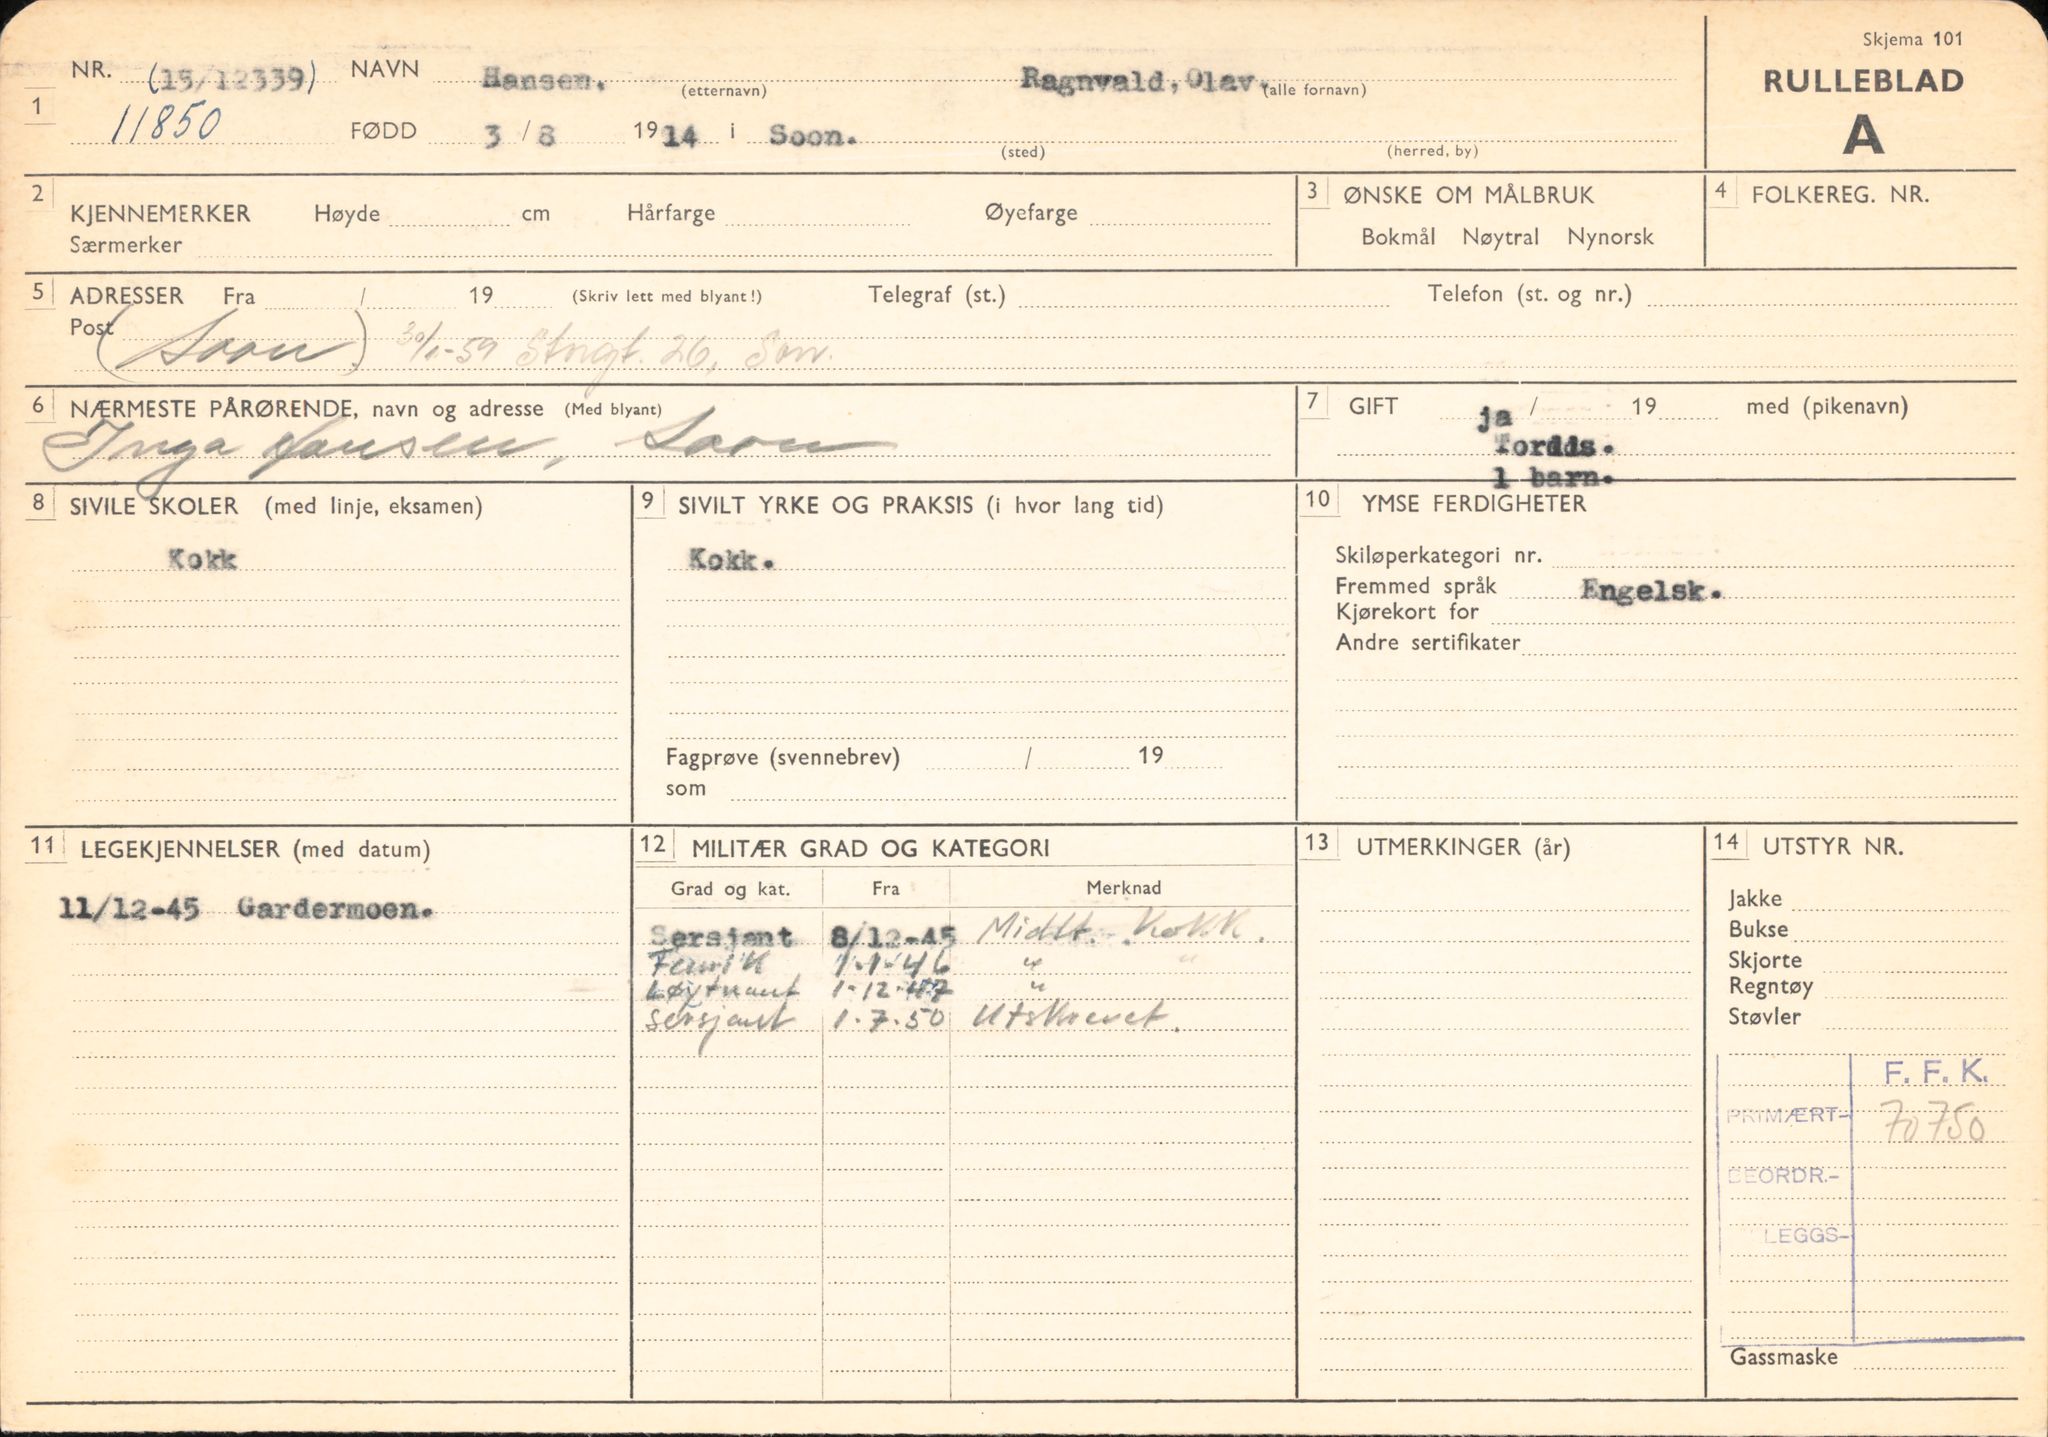 Skjema 101
RULLEBLAD
A
1 NR. (15/12339) NAVN Hansen. (etternavn) Ragnvald, Olav. (alle fornavn)
11850 FØDD 3 / 8 1914 i Soon. (sted) (herred, by)
2 KJENNEMERKER Høyde cm Hårfarge Øyefarge
Særmerker
3 ØNSKE OM MÅLBRUK
Bokmål Nøytral Nynorsk
4 FOLKEREG. NR.
5 ADRESSER Fra / 19 (Skriv lett med blyant!) Telegraf (st.) Telefon (st. og nr.)
Post
(Soon) 30/1-59 Storgt. 26, Son.
6 NÆRMESTE PÅRØRENDE, navn og adresse (Med blyant)
Inga Hansen, Soon
7 GIFT ja / 19 med (pikenavn)
Tordds.
1 barn.
8 SIVILE SKOLER (med linje, eksamen)
Kokk
9 SIVILT YRKE OG PRAKSIS (i hvor lang tid)
Kokk.
Fagprøve (svennebrev) / 19
som
10 YMSE FERDIGHETER
Skiløperkategori nr.
Fremmed språk Engelsk.
Kjørekort for
Andre sertifikater
11 LEGEKJENNELSER (med datum)
11/12-45 Gardermoen.
12 MILITÆR GRAD OG KATEGORI
Grad og kat. Fra Merknad
Sersjant 8/12-45 Midlt. Kokk.
Fenrik 1-1-46 " "
Løytnant 1-12-47 "
Sersjant 1.7.50 Utskrevet.
13 UTMERKINGER (år)
14 UTSTYR NR.
Jakke
Bukse
Skjorte
Regntøy
Støvler
F. F. K.
PRIMÆRT- 70750
BEORDR.-
LEGGS-
Gassmaske